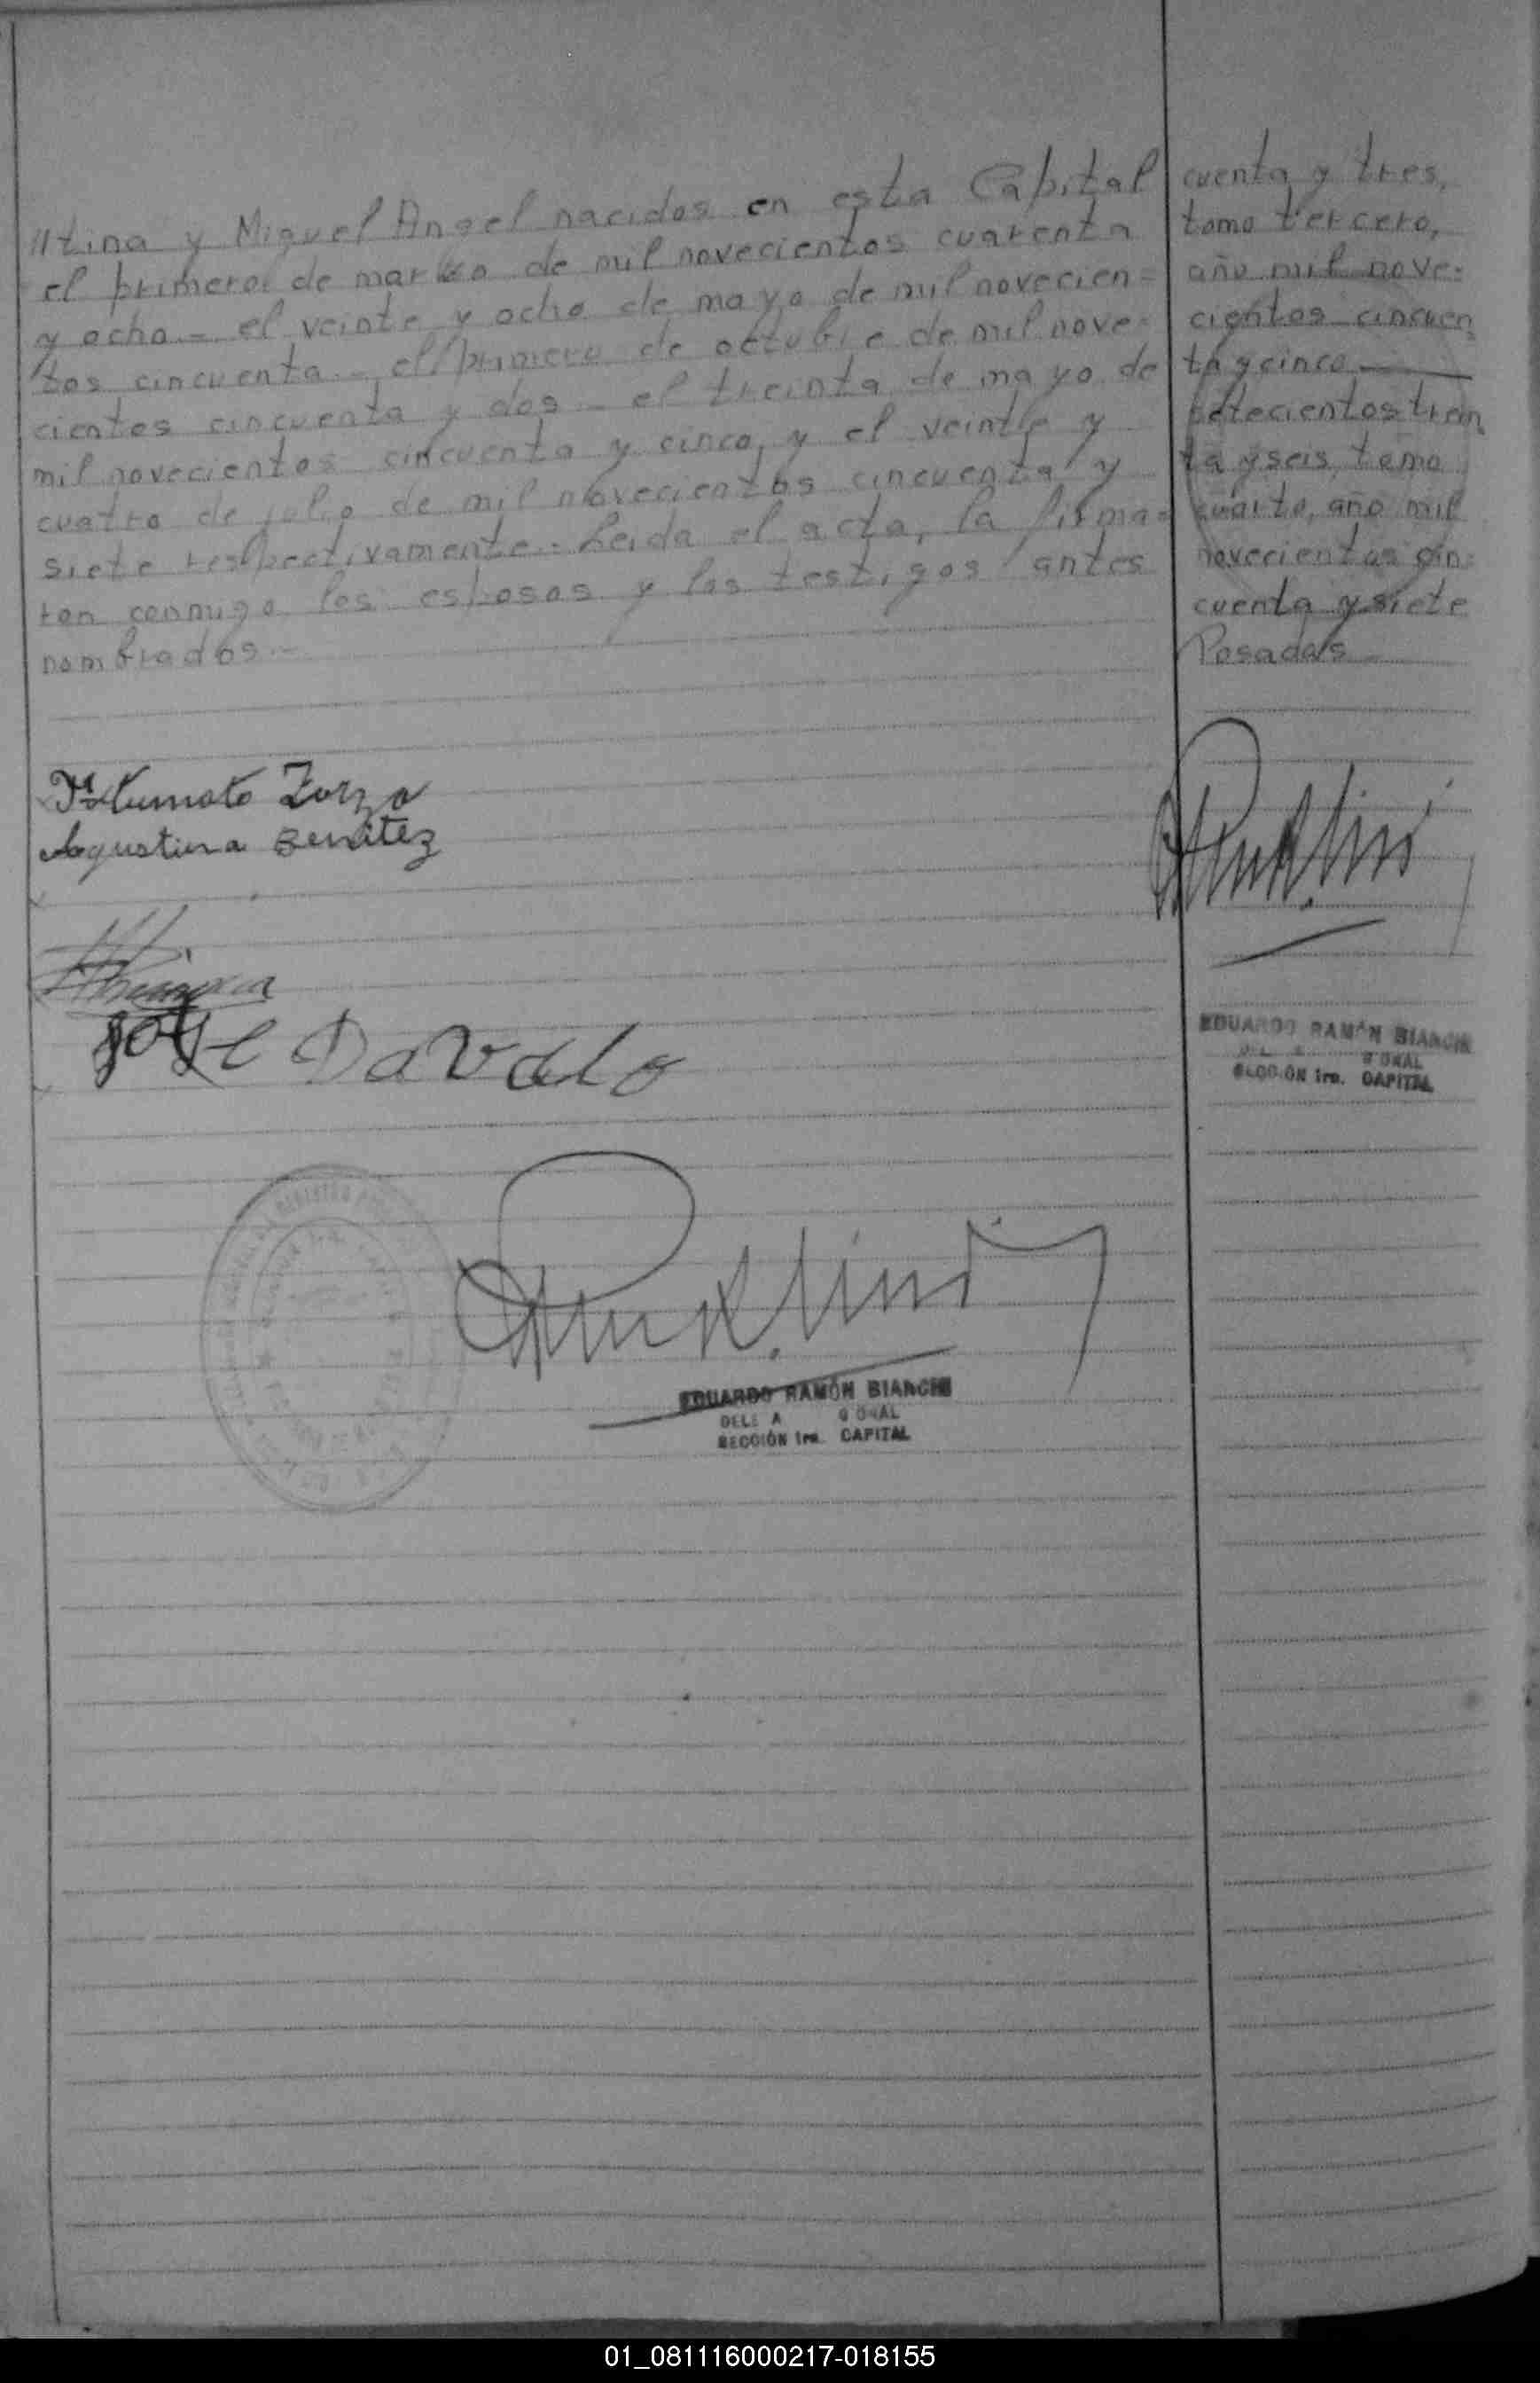 //tina y Miguel Angel nacidos en esta Capital
el primero de marzo de mil novecientos cuarenta
y ocho - el veinte y ocho de mayo de mil novecien=
tos cincuenta - el primero de octubre de mil nove=
cientos cincuenta y dos - el treinta de mayo de
mil novecientos cincuenta y cinco, y el veinte y
cuatro de julio de mil novecientos cincuenta y
siete respectivamente.- Leida el acta, la firma=
ron conmigo los esposos y los testigos antes
nombrados.-
cuenta y tres,
tomo tercero,
año mil nove=
cientos cincuen
ta y cinco
setecientos trein
ta y seis, tomo
cuarto, año mil
novecientos cin=
cuenta y siete
Posadas
Zorzo
Agustina Benitez
José Davalo
EDUARDO RAMÓN BIANCHI
SECCIÓN 1ra. CAPITAL
EDUARDO RAMÓN BIANCHI
SECCIÓN 1ra. CAPITAL
01_081116000217-018155